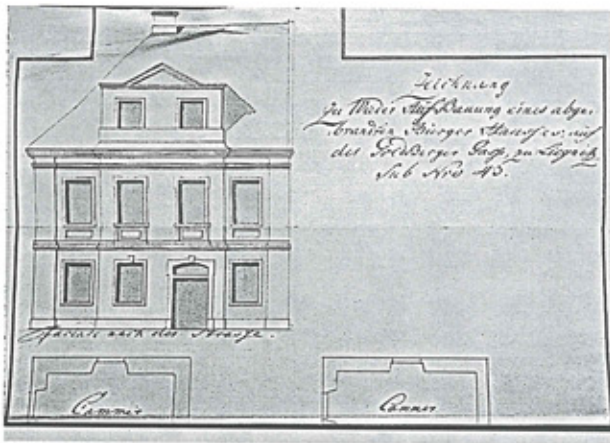 Zeichnung
zu Wieder Auf Bauung eines abge-
brandten Bürger Hauses auf
der Goldberger Gass zu Liegnitz
Sub Nro 43.
Faciate nach der Strasse.
Cammer
Cammer